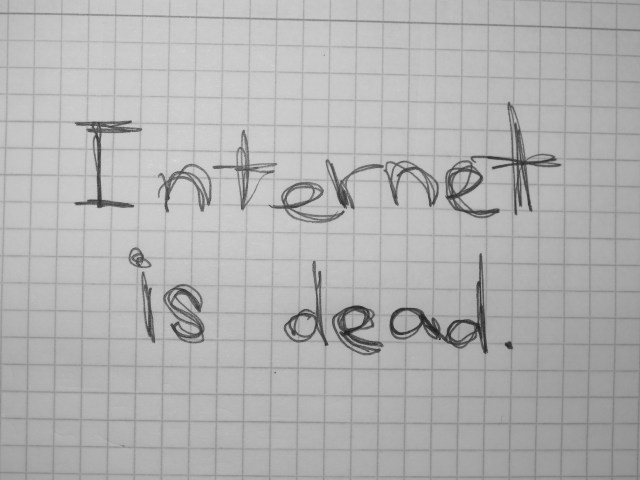 Internet
is dead.